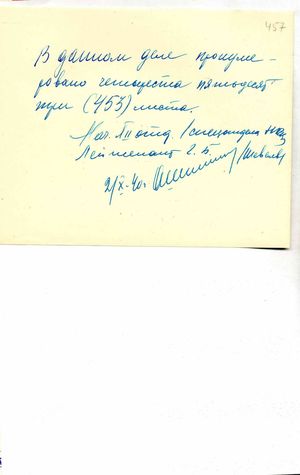 457
В данном деле пронуме-
ровано четыреста пятьдесят
три (453) листа.
Нач. XII отд. /спецотдела НКВД
Лейтенант г. б.
2/X-40г.